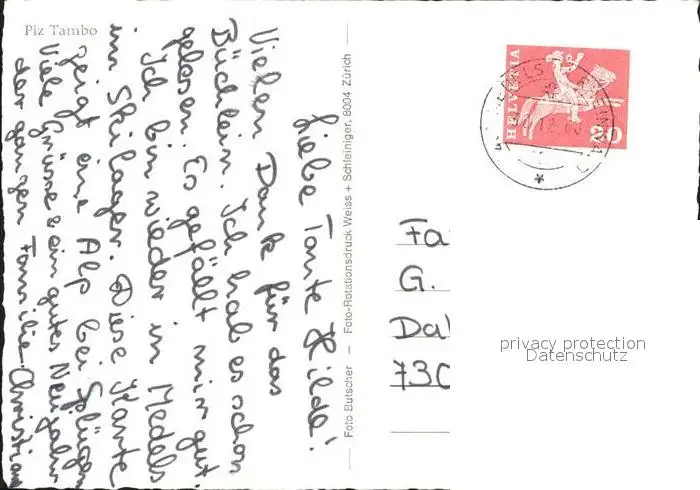 Piz Tambo
Liebe Tante Hilde!
Vielen Dank für das
Büchlein. Ich hab es schon
gelesen. Es gefällt mir gut.
Ich bin wieder in Medels
im Skilager. Diese Karte
zeigt eine Alp bei Splügen
Viele Grüsse & ein gutes Neujahr
der ganzen Familie. Christian
Foto Butscher — Foto-Rotationsdruck Weiss + Schleiniger, 8004 Zürich
HELVETIA
20
Fa
G.
Da
730
privacy protection
Datenschutz